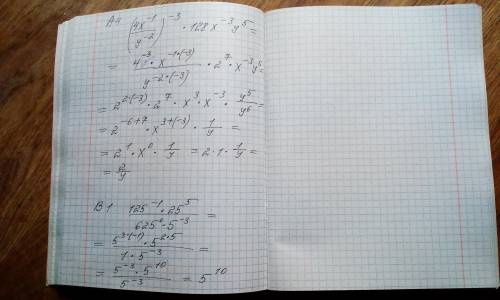 А4 (4x⁻¹/y⁻²)⁻³ · 128x⁻³y⁵ =
= 4⁻³ · x⁻¹·⁽⁻³⁾ / y⁻²·⁽⁻³⁾ · 2⁷ · x⁻³y⁵ =
= 2²⁽⁻³⁾ · 2⁷ · x³ · x⁻³ · y⁵/y⁶ =
= 2⁻⁶⁺⁷ · x³⁺⁽⁻³⁾ · 1/y =
= 2¹ · x⁰ · 1/y = 2 · 1 · 1/y =
= 2/y
В1 125⁻¹ · 25⁵ / 625⁰ · 5⁻³ =
= 5³·⁽⁻¹⁾ · 5²·⁵ / 1 · 5⁻³ =
= 5⁻³ · 5¹⁰ / 5⁻³ = 5¹⁰